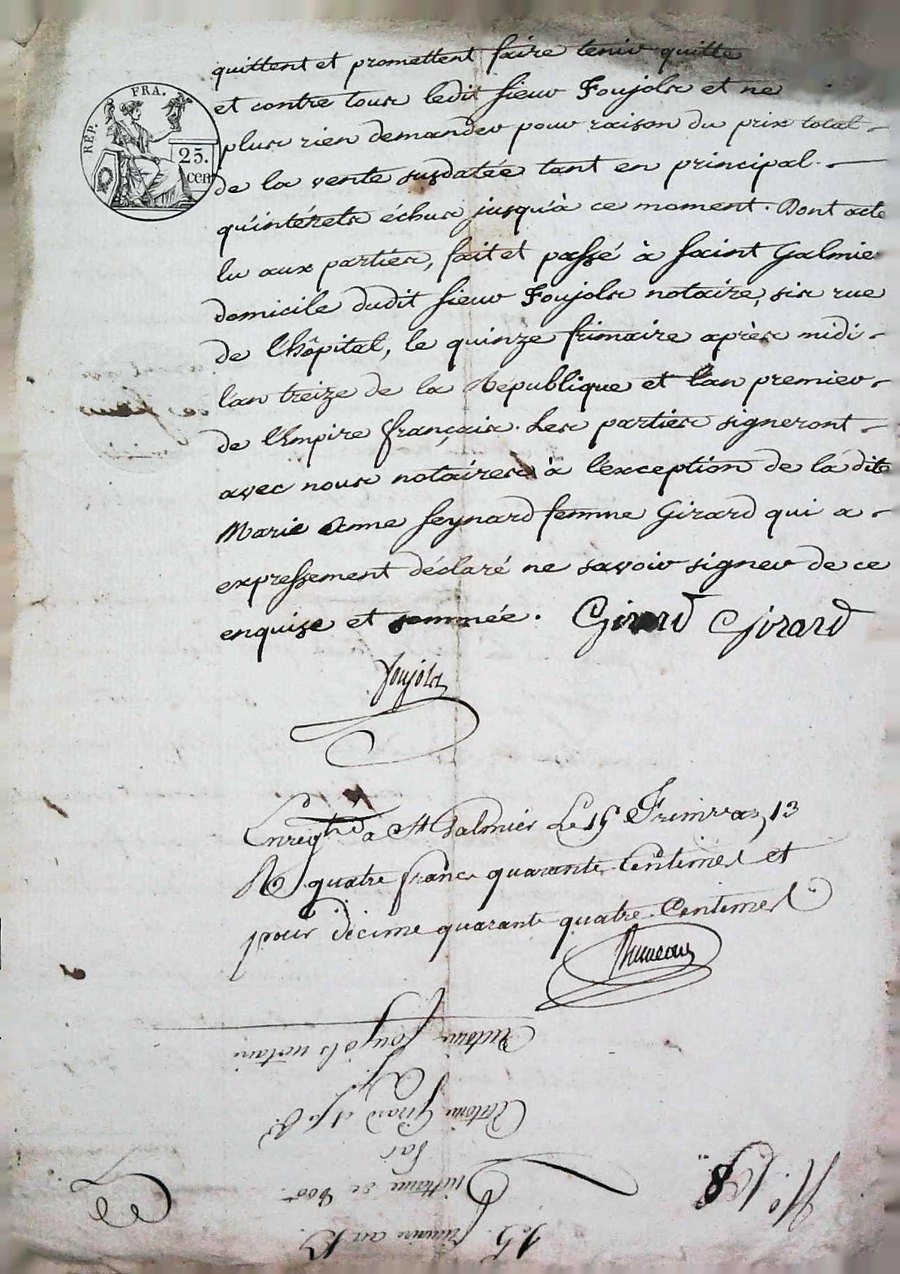 RÉP. FRA.
25.
cen
quittent et promettent faire tenir quitte
et contre tous ledit sieur Foujols et ne
plus rien demander pour raison du prix total
de la vente susdatée tant en principal
qu'intérêts échus jusqu'à ce moment. Dont acte
lu aux parties, fait et passé à Saint Galmier
domicile dudit sieur Foujols notaire, sis rue
de l'hôpital, le quinze frimaire après midi
l'an treize de la République et l'an premier
de l'Empire français. Les parties signeront
avec nous notaires à l'exception de la dite
Marie Anne Seynard femme Girard qui a
expressement déclaré ne savoir signer de ce
enquise et sommée. Girard Girard
Foujols
Enregté à St Galmier Le 15 Frimre an 13
R quatre francs quarante Centimes et
pour décime quarante quatre Centimes
15 frimaire an 13
Quittance de 800#
Par
Antoine Girard et sa f.
A Sr.
Antoine Foujols notaire
No. 108